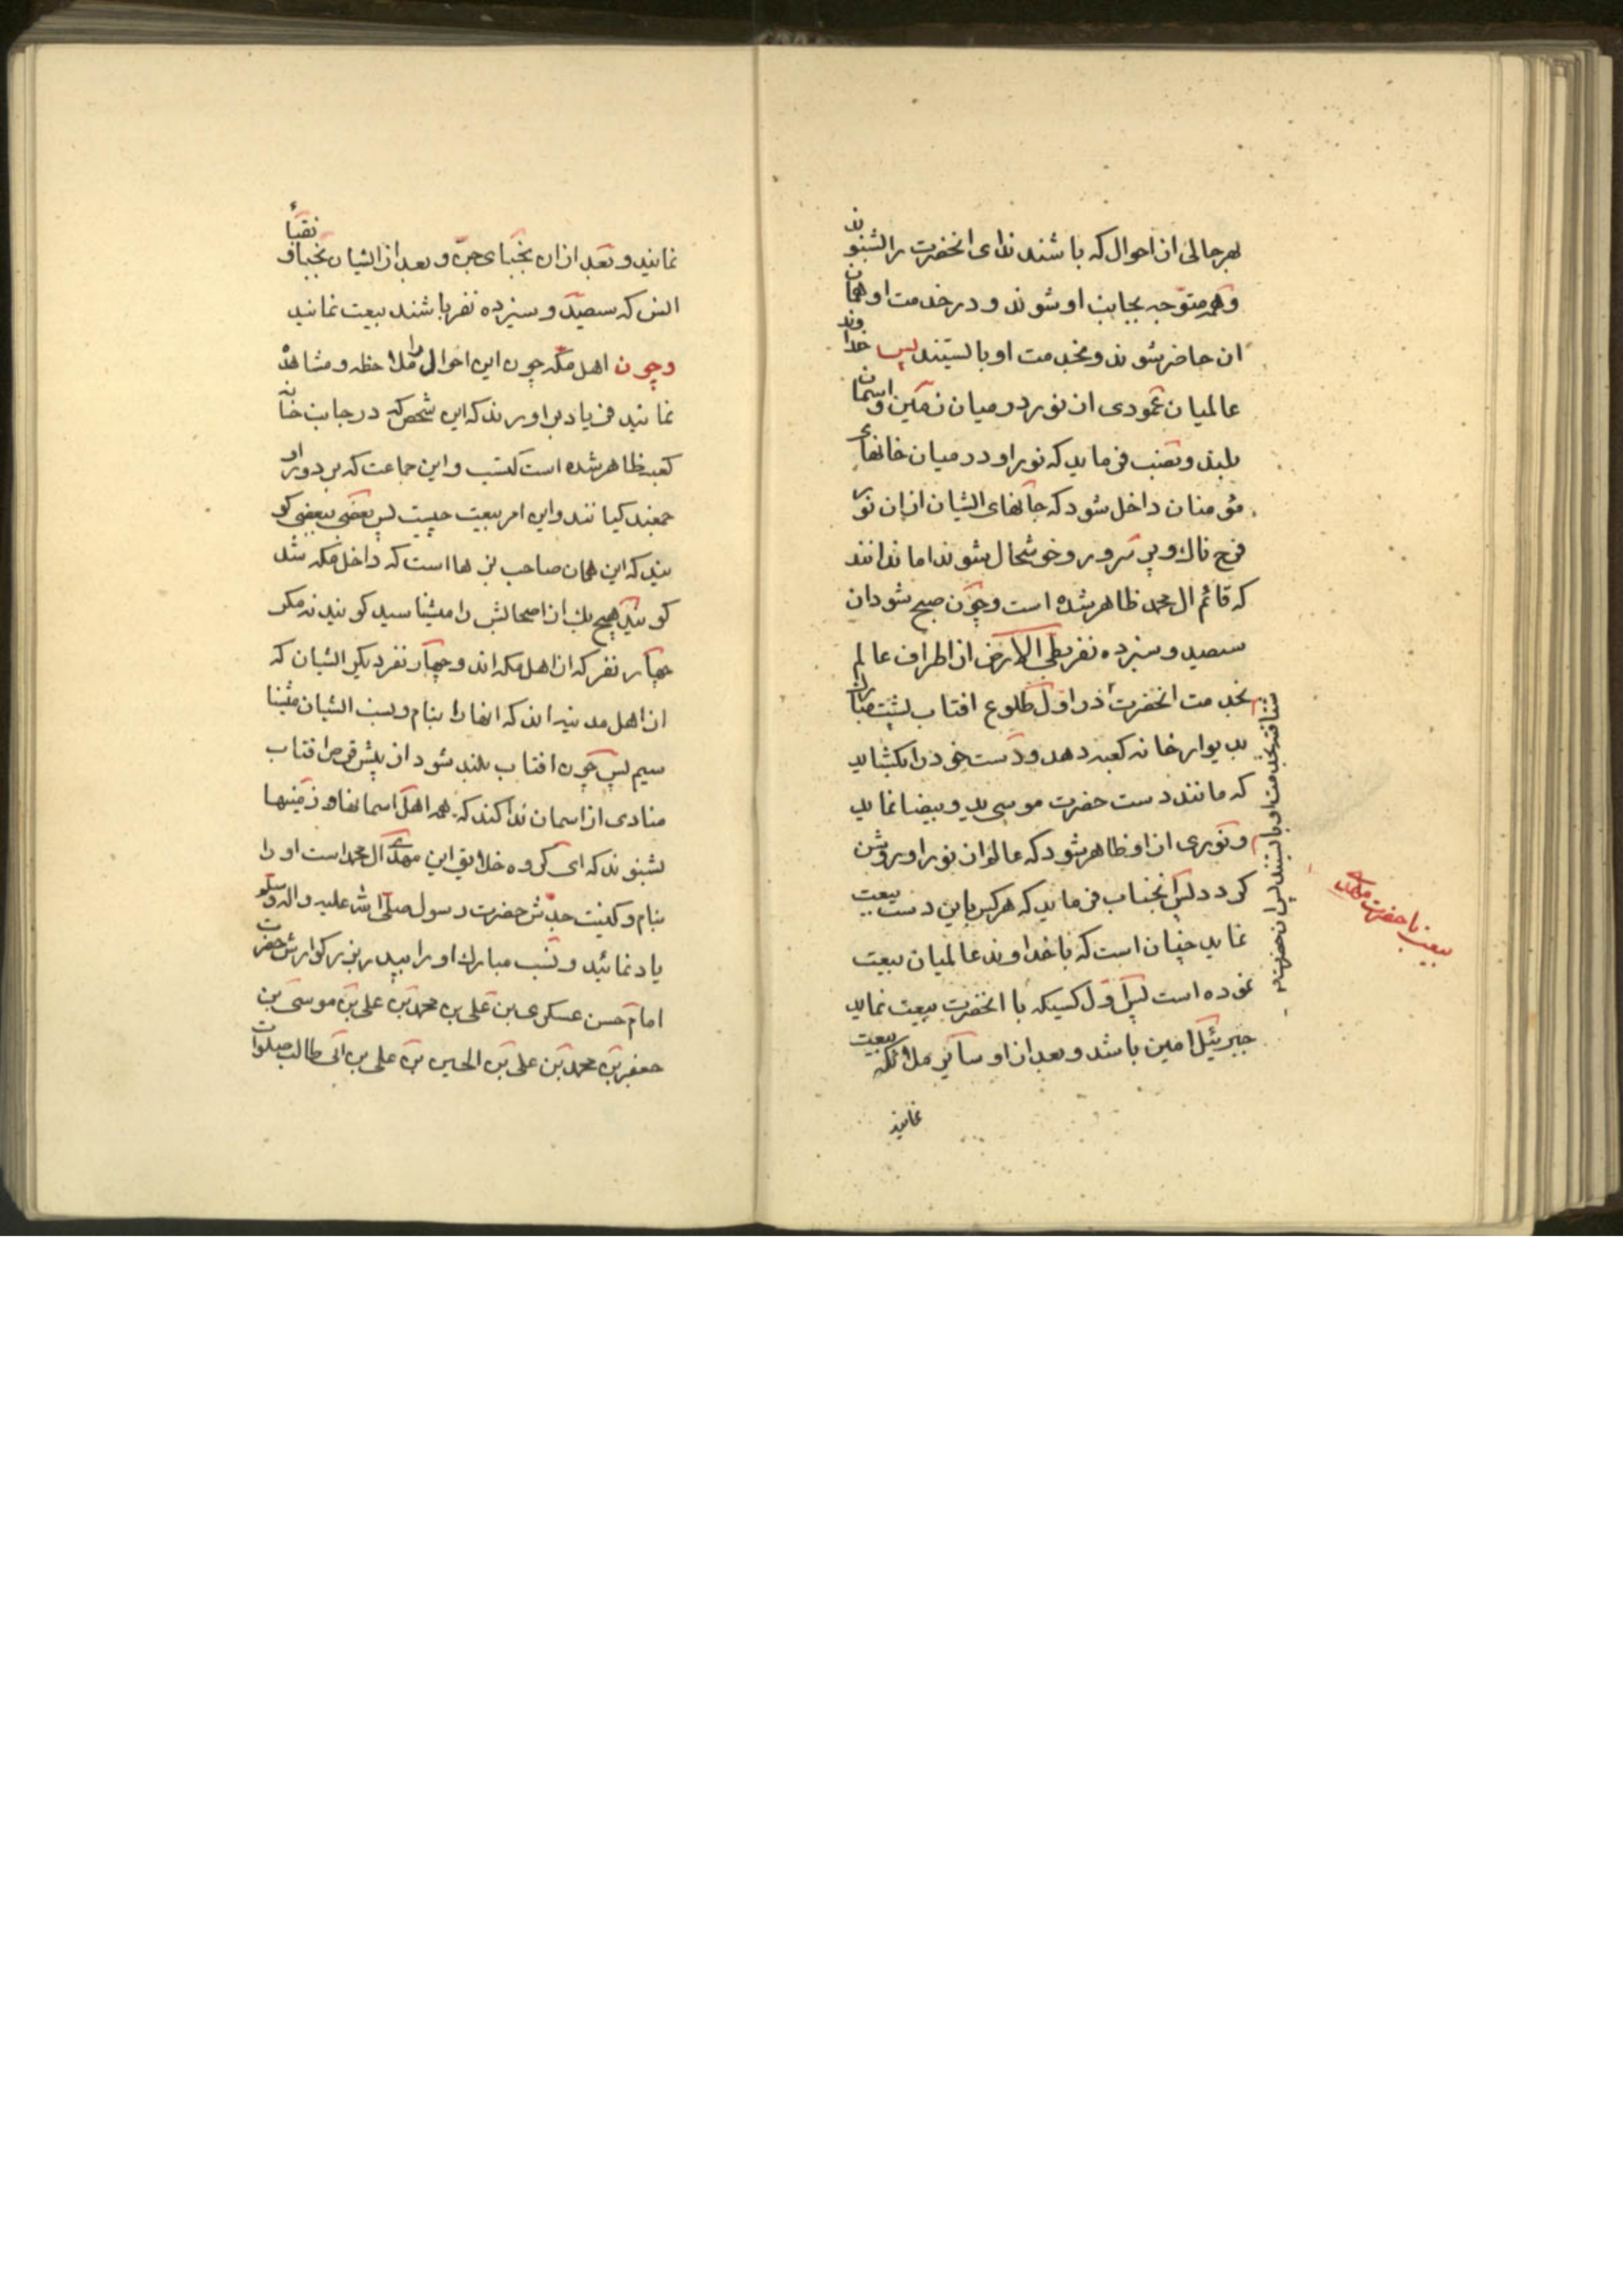 بهر حالی از احوال که باشند ندای انحضرت را بشنوند
و همه متوجه بجانب او شوند و در خدمت او همان
ان حاضر شوند و بخدمت او بایستند پس خداوند
عالمیان عمودی از نور در میان زمین و اسمان
بلند و نصب فرماید که نور او در میان خانهای
مؤمنان داخل شود که جانهای ایشان از ان نور
فرح ناک و پر سرور و خوشحال شوند اما ندانند
که قائم ال محمد ظاهر شده است و چون صبح شود ان
سیصد و سیزده نفر بطی الارض از اطراف عالم
بخدمت انحضرت در اول طلوع افتاب پشت مبارک
بدیوار خانه کعبه دهد و دست خود را بکشاید
که مانند دست حضرت موسی ید و بیضا نماید
و نوری از او ظاهر شود که عالم از نور او روشن
کردد پس انجناب فرماید که هر کس باین دست بیعت
نماید چنان است که با خداوند عالمیان بیعت
نموده است پس اول کسیکه با انحضرت بیعت نماید
جبرئیل امین باشد و بعد از او سایر ملائکه بیعت
نمایند
شتافته بخدمت او بایستند پس ان حضرت
بیعت با حضرت مهدی
نمایند و بعد از ان نجبای جن و بعد از ایشان نجبا و نقباء
انس که سیصد و سیزده نفر باشند بیعت نمایند
و چون اهل مکه چون این احوال را ملاحظه و مشاهده
نمایند فریاد بر اورند که این شخص که در جانب خانه
کعبه ظاهر شده است کیست و این جماعت که بر دور او
جمعند کیانند و این امر بیعت چیست پس بعضی ببعضی کو
یند که این همان صاحب بزها است که داخل مکه شد
کویند هیچ یک از اصحابش را میشناسید کویند نه مکر
چهار نفر که از اهل مکه اند و چهار نفر دیکر ایشان که
از اهل مدینه اند که انها را بنام و نسب ایشان میشنا
سیم پس چون افتاب بلند شود از پیش قرص افتاب
منادی از اسمان ندا کند که همه اهل اسمانها و زمینها
بشنوند که ای کروه خلایق این مهدی ال محمد است او را
بنام و کنیت جدش حضرت رسول صلی الله علیه واله وسلم
یاد نمائید و نسب مبارک او را بپدر بزرکوارش حضرت
امام حسن عسکری بن علی بن محمد بن علی بن موسی بن
جعفر بن محمد بن علی بن الحسین بن علی بن ابی طالب صلوات